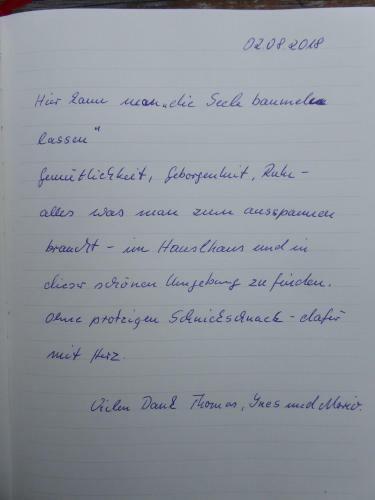 02.08.2018
Hier kann man „die Seele baumeln
lassen"
Gemütlichkeit, Geborgenheit, Ruhe –
alles was man zum ausspannen
braucht – im Hauslhaus und in
dieser schönen Umgebung zu finden.
Ohne protzigen Schnickschnack – dafür
mit Herz.
Vielen Dank Thomas, Ynes und Mario.